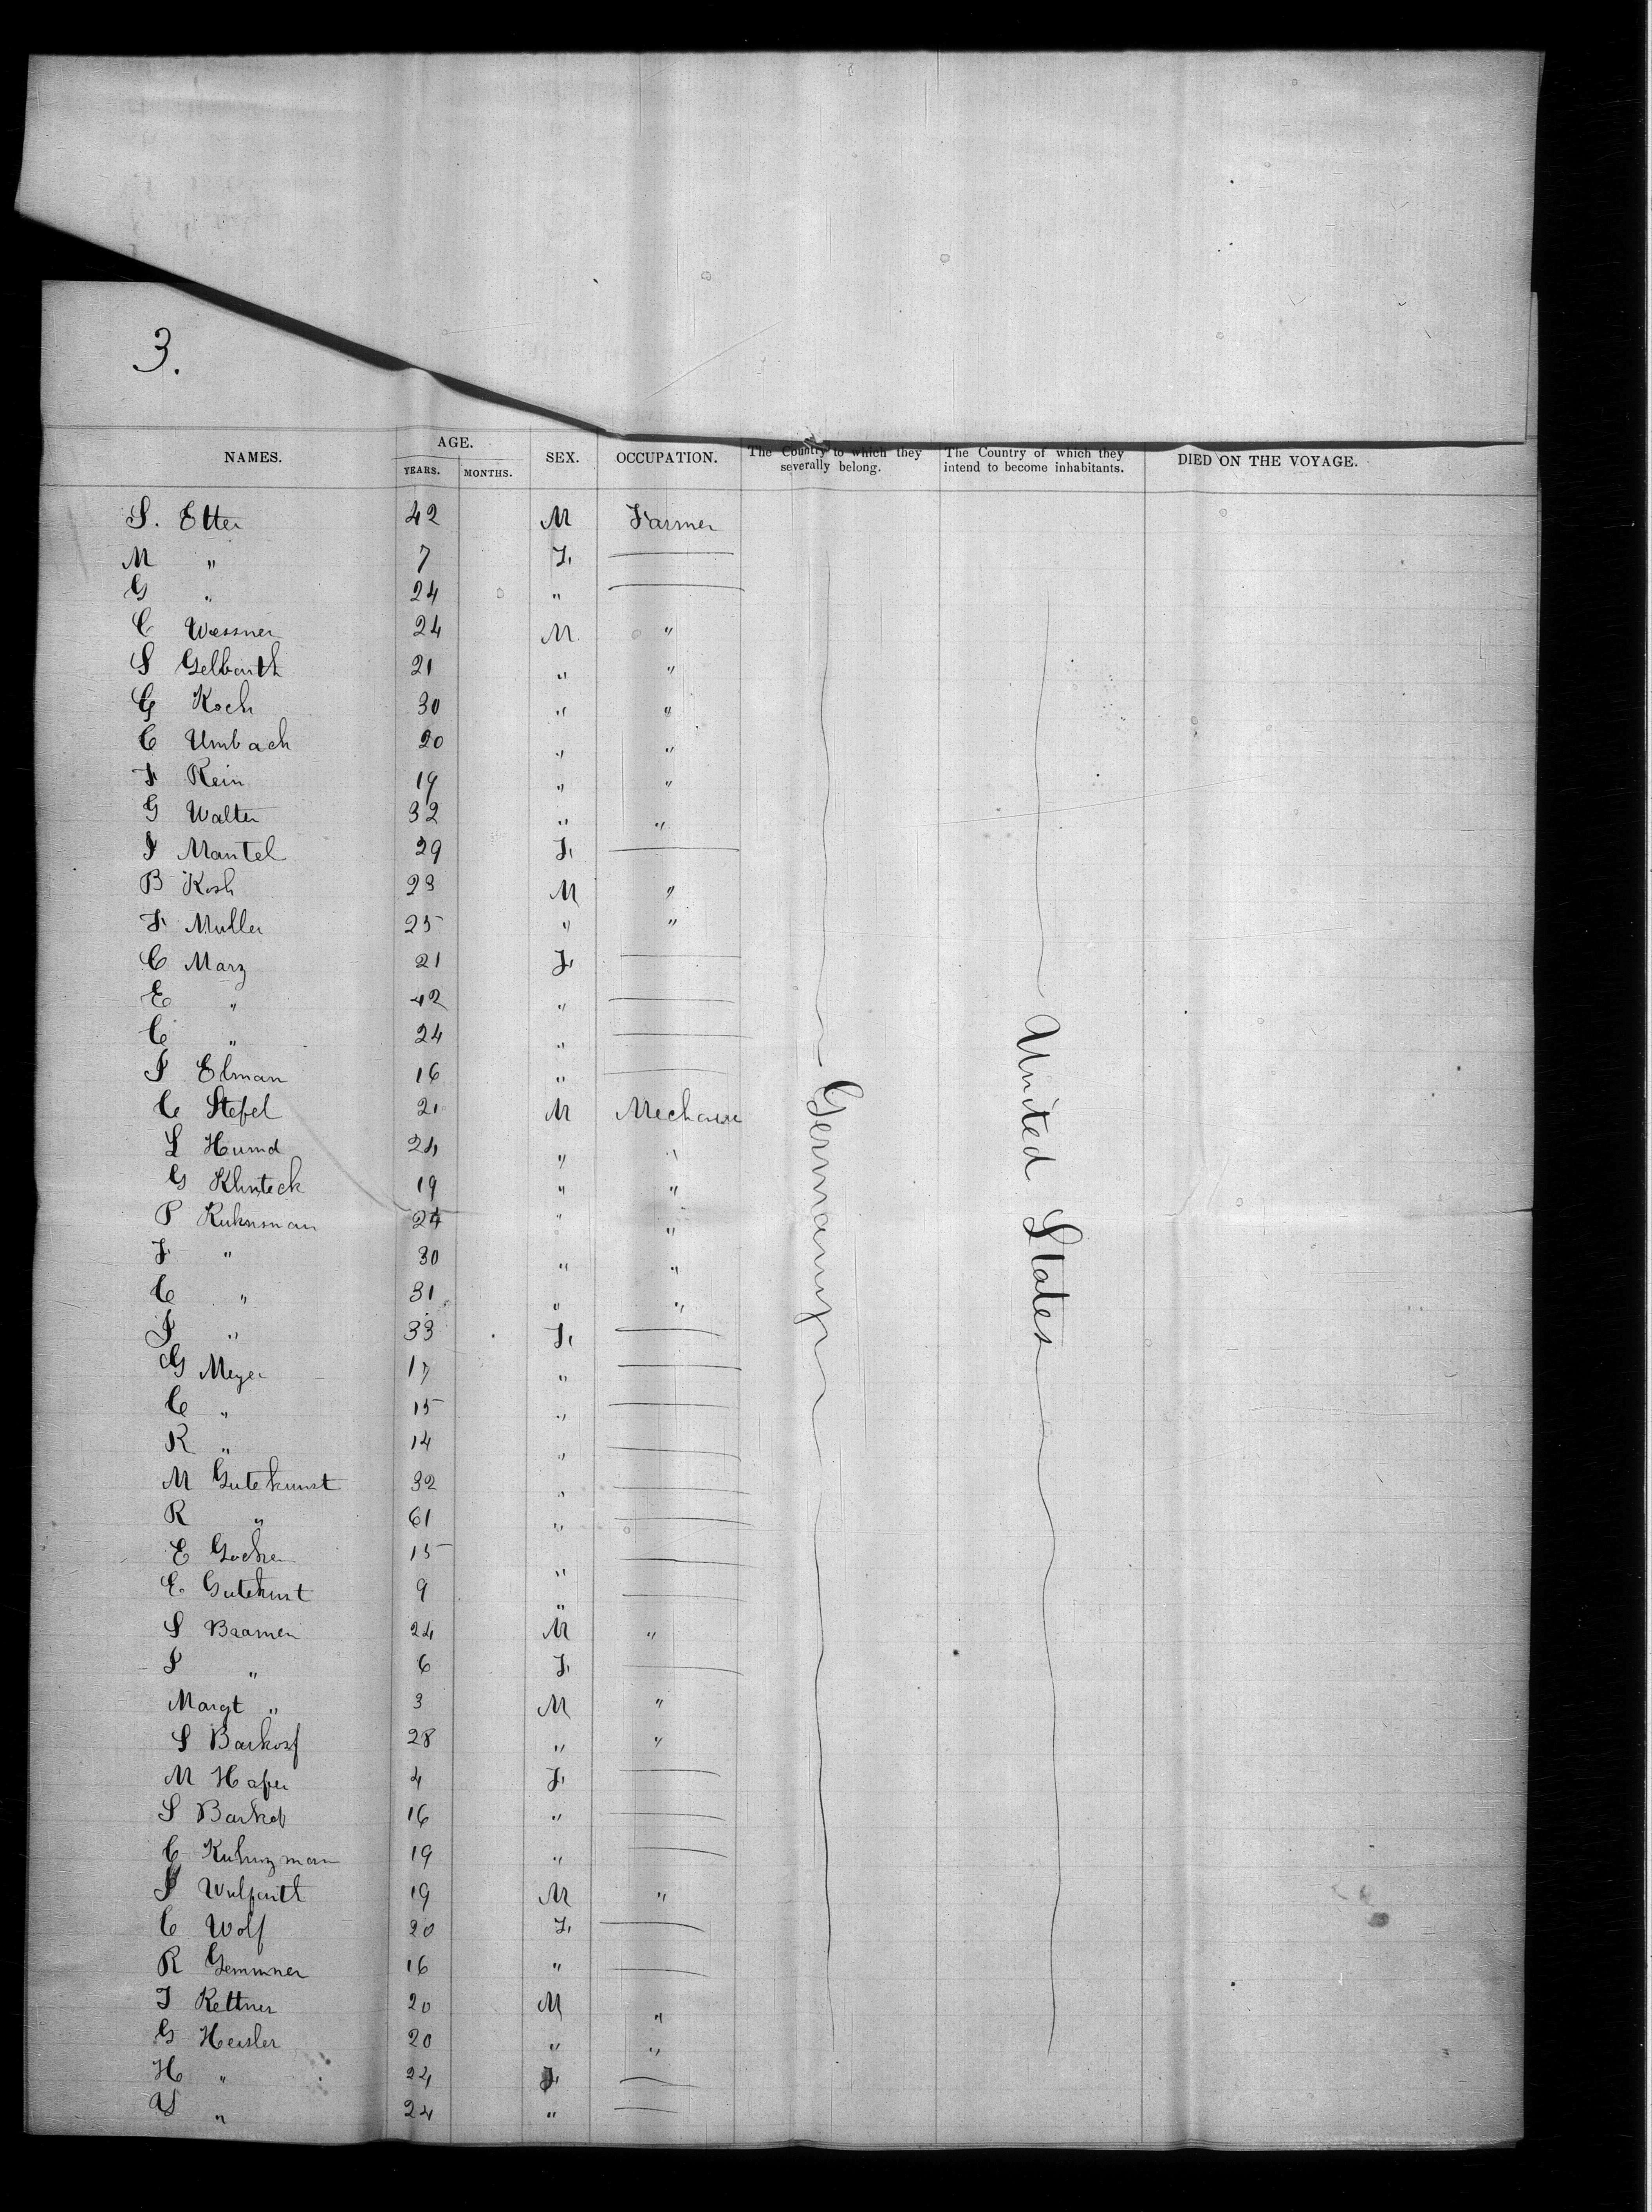 3.
NAMES. AGE. YEARS. MONTHS. SEX. OCCUPATION. The Country to which they severally belong. The Country of which they intend to become inhabitants. DIED ON THE VOYAGE.
S. Etter 42 M Farmer
M " 7 F. —
G " 24 " —
C Wessner 24 M "
S Gelbarth 21 " "
G Koch 30 " "
C Umbach 20 " "
F Rein 19 " "
G Walter 32 " "
Mantel 29 F. —
B Kosh 23 M "
F. Muller 25 " "
C Marz 21 F. —
E " 42 " —
C " 24 " —
Elman 16 " —
C Stefel 21 M
L Humd 24 " "
G 19 " "
P Kuhnsman 24 " "
F " 30 " "
C " 31 " "
" 33 F. —
G Meyer 17 " —
C " 15 " —
R " 14 " —
M Gutekunst 32 " —
R " 61 " —
E 15 " —
E Gutekunst 9 " —
S Baamen 24 M "
" 6 F. —
Margt " 3 M "
S 28 " "
M 4 F. —
S 16 " —
C 19 " —
19 M "
C Wolf 20 F. —
R Gemmner 16 " —
J Kettner 20 M "
G Heisler 20 " "
H " 24 F. —
" 24 " —
Germany
United States